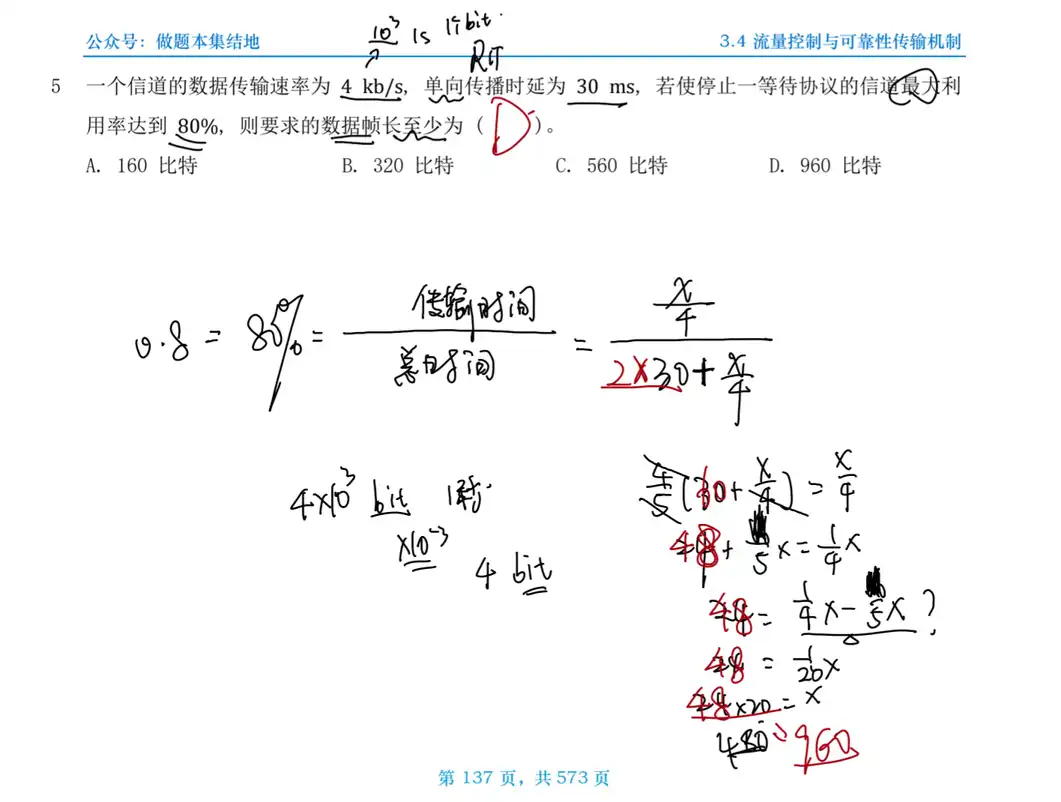 公众号：做题本集结地
3.4 流量控制与可靠性传输机制
10³ 1s 1个bit
RTT
5 一个信道的数据传输速率为 4 kb/s，单向传播时延为 30 ms，若使停止—等待协议的信道最大利
用率达到 80%，则要求的数据帧长至少为（ D ）。
A. 160 比特 B. 320 比特 C. 560 比特 D. 960 比特
0.8 = 80% = 传输时间 / 总时间 = x/4 / 2×30+x/4
4×10³ bit 1秒
×10⁻³
4 bit
4/5 ( 60+ x/4 ) = x/4
48 + 1/5 x = 1/4 x
48 = 1/4 x − 1/5 x ?
48 = 1/20 x
48 ×20 = x
480 960
第 137 页，共 573 页